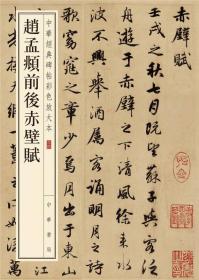 中華經典碑帖彩色放大本
趙孟頫前後赤壁賦
中華書局
赤壁賦
壬戌之秋七月既望蘇子與客泛
舟遊于赤壁之下清風徐來水波
不興舉酒屬客誦明月之詩
歌窈窕之章少焉月出于東山